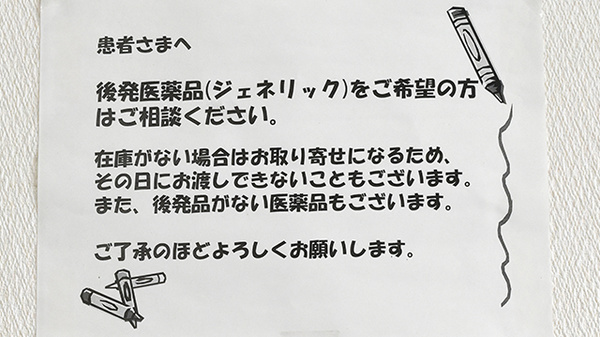 患者さまへ
後発医薬品(ジェネリック)をご希望の方
はご相談ください。
在庫がない場合はお取り寄せになるため、
その日にお渡しできないこともございます。
また、後発品がない医薬品もございます。
ご了承のほどよろしくお願いします。